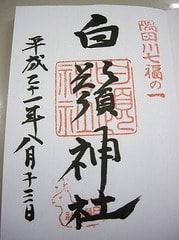 隅田川七福の一
白鬚神社
平成二十一年八月十三日